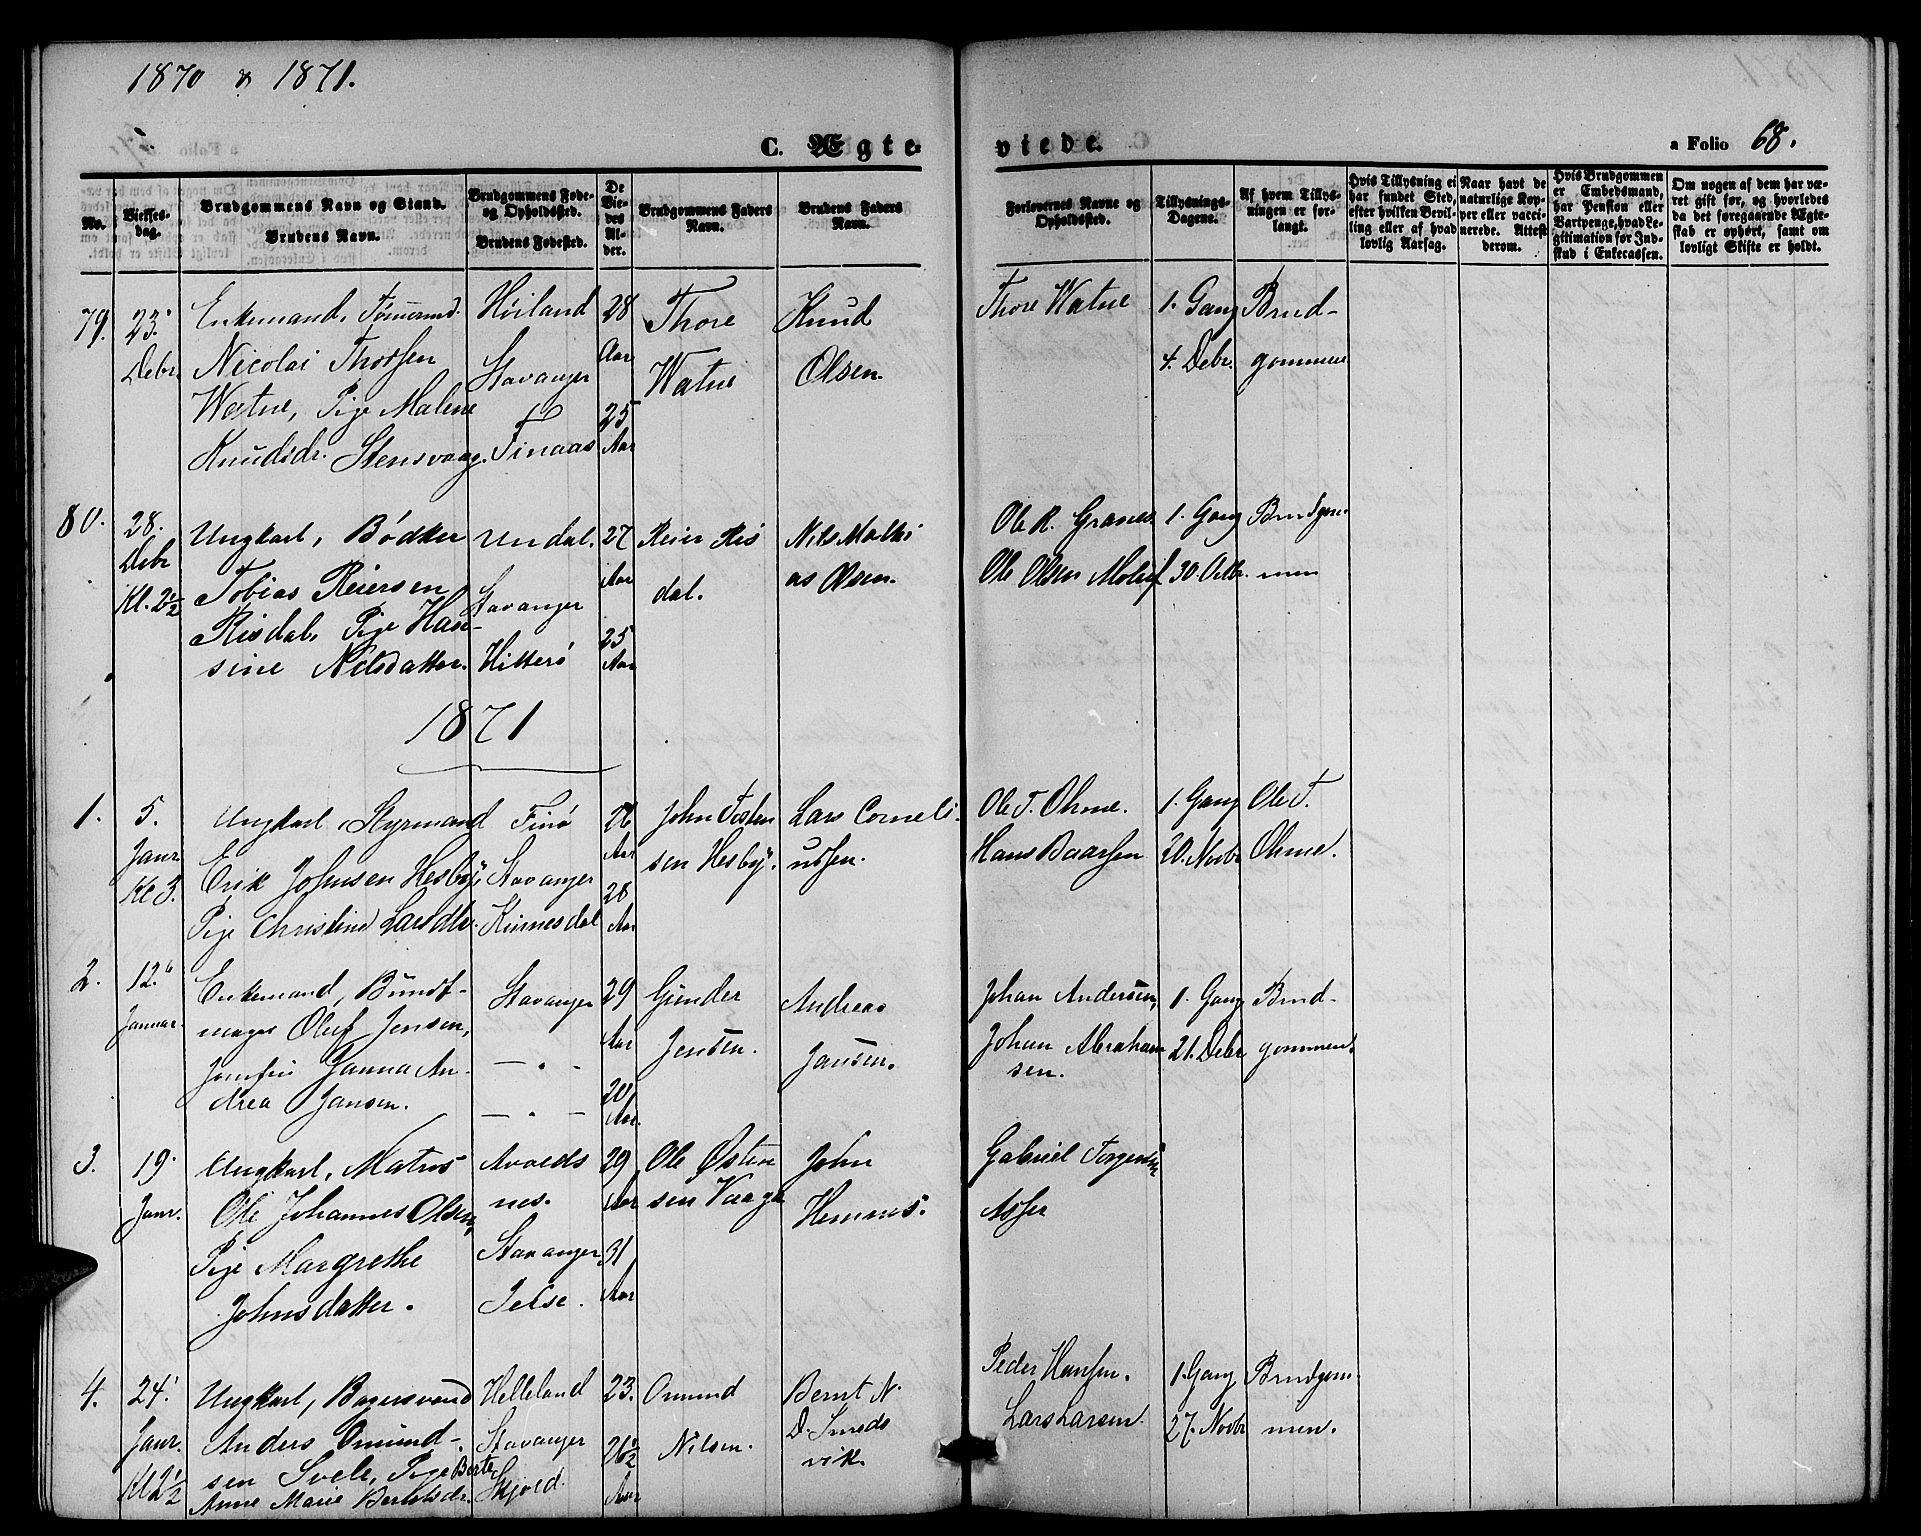 1870 & 1871.
C. Ægte-
viede.
a Folio 68.
No.
Vielses-
dag.
Brudgommens Navn og Stand.
Brudens Navn.
Brudgommens Føde-
og Opholdssted.
Brudens Fødested.
De
Vie-
des
Al-
der.
Brudgommens Faders
Navn.
Brudens Faders
Navn.
Forlovernes Navne og
Opholdssted.
Tillysnings-
Dagene.
Af hvem Tillys-
ningen er for-
langt.
Hvis Tillysning ei
har fundet Sted,
efter hvilken Bevil-
ling eller af hvad
lovlig Aarsag.
Naar havt de
naturlige Kop-
per eller vacci-
nerede. Attest
derom.
Hvis Brudgommen
er Embedsmand,
har Pension eller
Vartpenge, hvad Le-
gitimation for Ind-
skud i Enkecassen.
Om nogen af dem har væ-
ret gift før, og hvorledes
da det foregaaende Ægte-
skab er ophørt, samt om
lovligt Skifte er holdt.
79.
23.
Debr.
Enkemand, Tømmermd.
Nicolai Thorsen
Watne, Pige Malene
Knudsdr. Stensvaag.
Høiland
Stavanger
Finaas
28
Aar
25
Aar
Thore
Watne
Knud
Olsen.
Thore Watne
1. Gang
4. Debr.
Brud-
gommen
80.
28.
Debr
Kl. 2½
Ungkarl, Bødker
Tobias Reiersen
Risdal, Pige Han-
sine Nilsdatter.
Undal.
Stavanger
Hitterø
27
Aar
25
Aar
Reier Ris
dal.
Nils Mathi
as Olsen.
Ole R. Granes
Ole Olsen
1. Gang
30 Octbr.
Brudgom
men
1871
1.
5.
Janr
Kl 3.
Ungkarl, Styrmand
Erik Johnsen Hesbye
Pige Christine Larsdtr.
Finø
Stavanger
Kinnesdal
26
Aar
28
Aar
John Tosten
sen Hesby.
Lars Corneli-
ussen.
Ole T. Ohme.
Hans Baarsen
1. Gang
20. Novbr
Ole T.
Ohme.
2.
12.
Januar.
Enkemand, Bundt-
mager Oluf Jensen,
Jomfru Janna An-
drea Jansen.
Stavanger
— " —
— " —
29
Aar
20
Aar.
Gunder
Jensen.
Andreas
Jansen.
Johan Andersen,
Johan Abraham
sen.
1. Gang
21. Debr
Brud-
gommen.
3.
19.
Janr.
Ungkarl, Matros
Ole Johannes Olsen,
Pige Margrethe
Johnsdatter.
Avalds
nes.
Stavanger
Jelse.
29
Aar
31
Aar
Ole Østen
sen Vaage
John
Hemnes.
Gabriel Torgersen
4.
24.
Janr.
Kl 2½
Ungkarl, Bagersvend
Anders Omund-
sen Svele, Pige Berte
Anne Marie Berntsdr.
Helleland
Stavanger
Skjold.
23.
26½
Aar
Omund
Nilsen.
Bernt N.
D. Smeds
vik.
Peder Hansen.
Lars Larsen.
1. Gang
27. Novbr
Brudgom-
men.